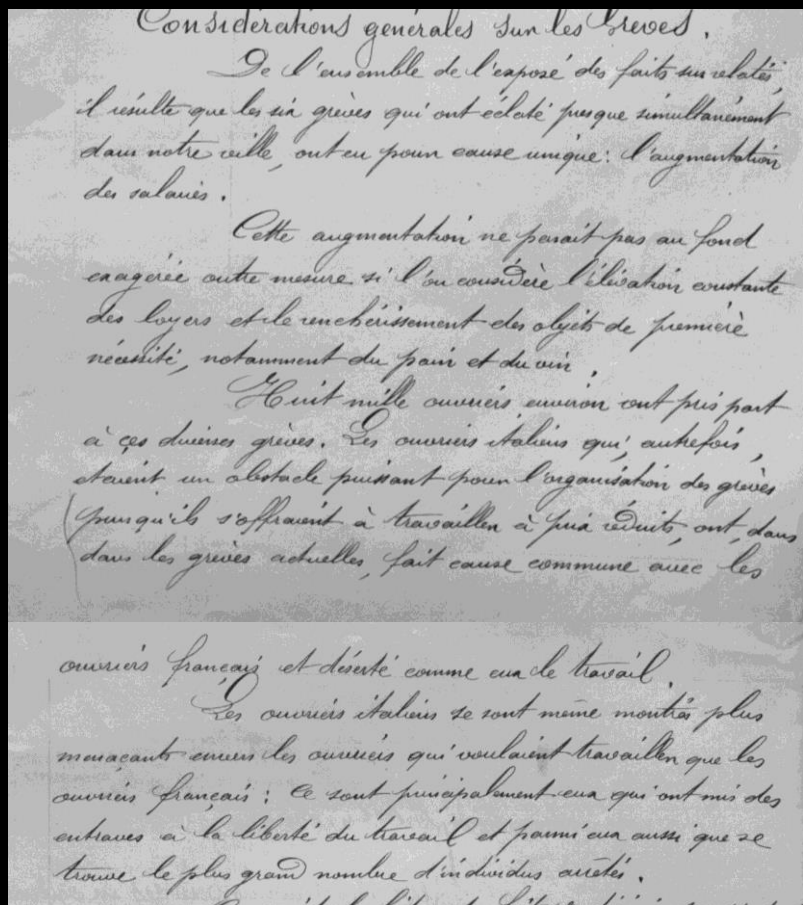 Considérations générales sur les Grèves.
De l'ensemble de l'exposé des faits sus relatés,
il résulte que les six grèves qui ont éclaté presque simultanément
dans notre ville, ont eu pour cause unique: l'augmentation
des salaires.
Cette augmentation ne parait pas au fond
exagérée outre mesure si l'on considère l'élévation constante
des loyers et le renchérissement des objets de première
nécessité, notamment du pain et du vin.
Huit mille ouvriers environ ont pris part
à ces diverses grèves. Les ouvriers italiens qui, autrefois,
étaient un obstacle puissant pour l'organisation des grèves
puisqu'ils s'offraient à travailler à prix réduits, ont, dans
dans les grèves actuelles, fait cause commune avec les
ouvriers français et déserté comme eux le travail.
Les ouvriers italiens se sont même montrés plus
menaçants envers les ouvriers qui voulaient travailler que les
ouvriers français: ce sont principalement eux qui ont mis des
entraves à la liberté du travail et parmi eux aussi que se
trouve le plus grand nombre d'individus arrêtés.